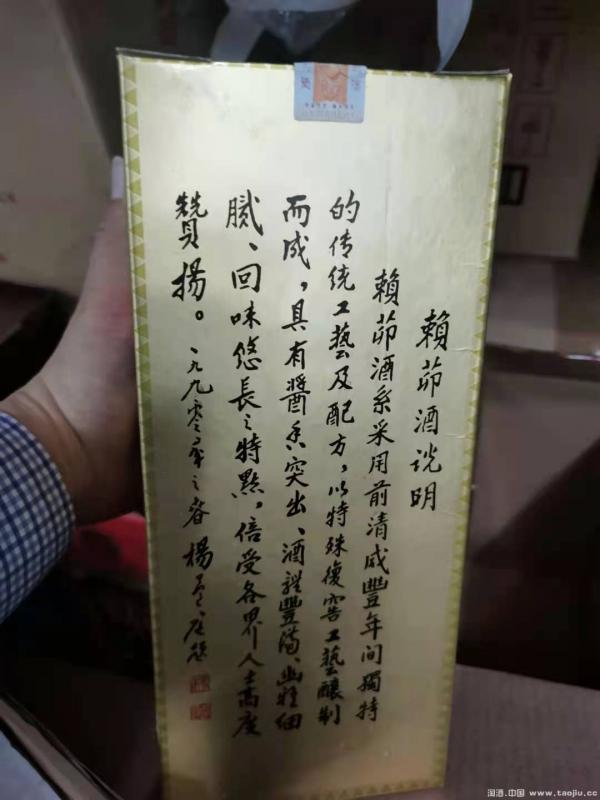 賴茆酒说明
賴茆酒系采用前清咸豐年间獨特
的传统工藝及配方，以特殊復窖工藝釀制
而成，具有醬香突出、酒體豐满、幽雅细
腻、回味悠長之特點，倍受各界人士高度
贊揚。一九九零年之春 楊
淘酒.中国 www.taojiu.cc